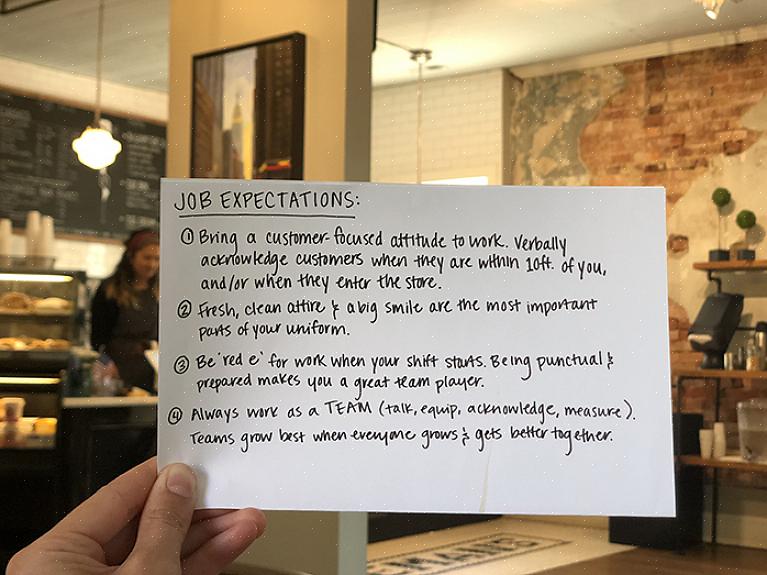 JOB EXPECTATIONS:
① Bring a customer-focused attitude to work. Verbally
acknowledge customers when they are within 10ft. of you,
and/or when they enter the store.
② Fresh, clean attire & a big smile are the most important
parts of your uniform.
③ Be 'red e' for work when your shift starts. Being punctual &
prepared makes you a great team player.
④ Always work as a TEAM (talk, equip, acknowledge, measure).
Teams grow best when everyone grows & gets better together.